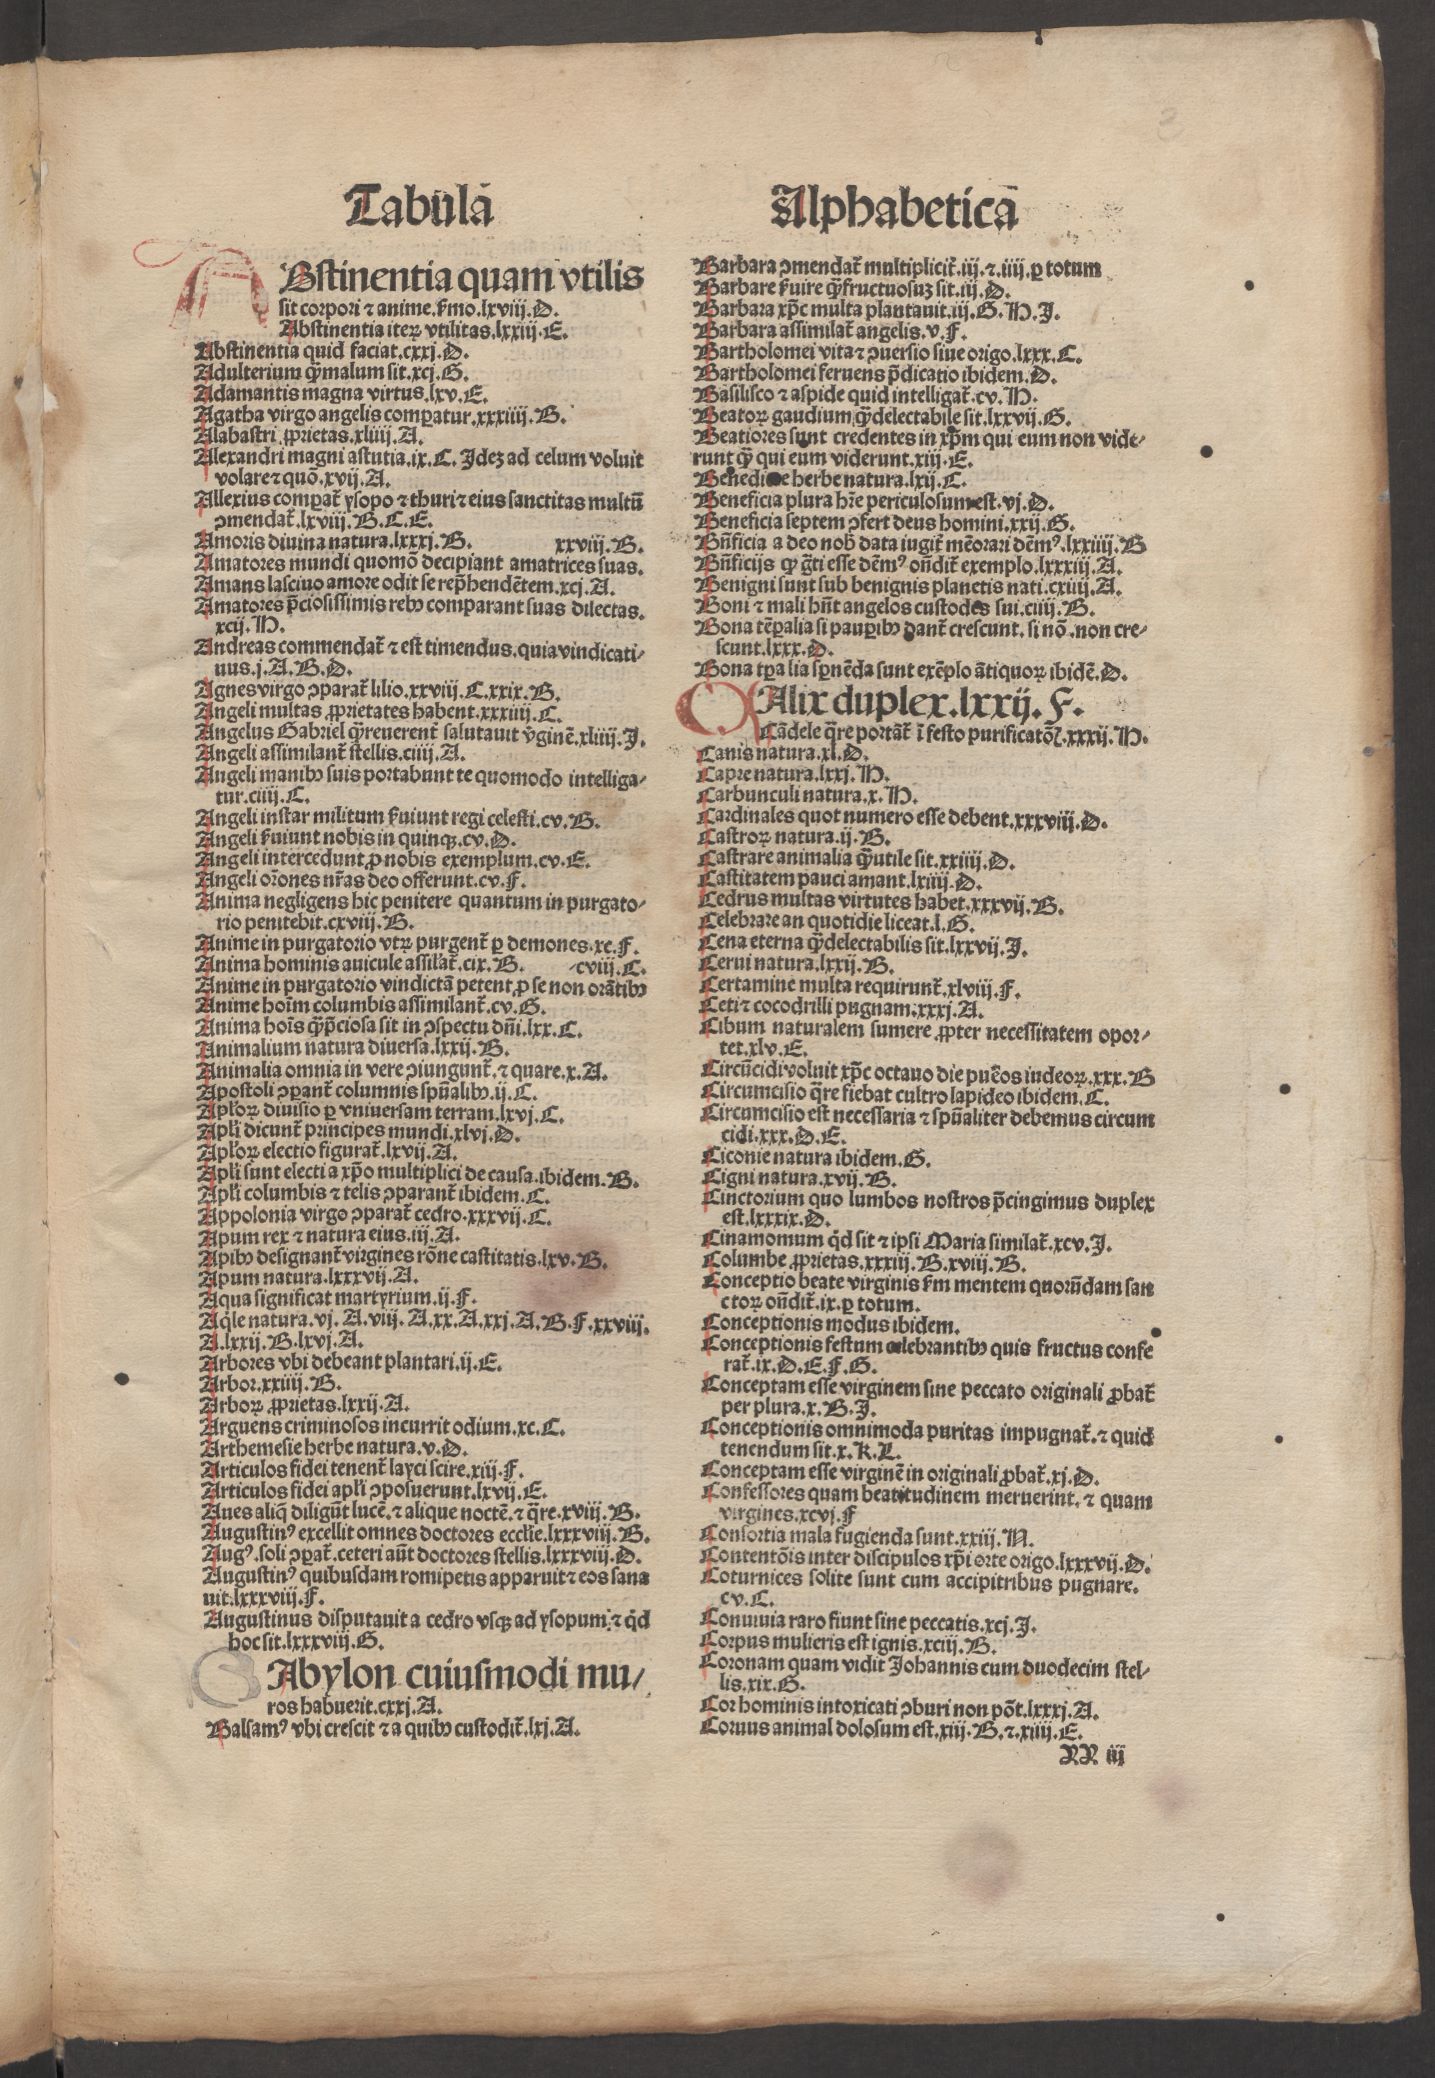 Tabula
ABstinentia quam vtilis
sit corpori ⁊ anime. ẜmo. lxviij. D.
Abstinentia iteꝝ vtilitas. lxxiij. E.
Abstinentia quid faciat. cxxj. D.
Adulterium qͣ̃ malum sit. xcj. G.
Adamantis magna virtus. lxv. E.
Agatha virgo angelis comꝑatur. xxxiiij. B.
Alabastri ꝓprietas. xliiij. A.
Alexandri magni astutia. ix. C. Idez ad celum voluit
volare ⁊ quō. xvij. A.
Allexius comꝑat᷑ ysopo ⁊ thuri ⁊ eius sanctitas multū
ↄmendat᷑. lxviij. B. C. E.
Amoris diuina natura. lxxxj. B. xxviij. B.
Amatores mundi quomō decipiant amatrices suas.
Amans lasciuo amore odit se rep̄hendētem. xcj. A.
Amatores p̄ciosissimis rebꝰ comparant suas dilectas.
xcij. H.
Andreas commendat᷑ ⁊ est timendus. quia vindicati⸗
uus. j. A. B. D.
Agnes virgo ↄparat᷑ lilio. xxviij. C. xxix. B.
Angeli multas ꝓprietates habent. xxxiiij. C.
Angelus Gabriel qͣ̃ reuerent᷑ salutauit v̄ginē. xliiij. I.
Angeli assimilant᷑ stellis. ciiij. A.
Angeli manibꝰ suis portabunt te quomodo intelliga⸗
tur. ciiij. C.
Angeli instar militum ẜuiunt regi celesti. cv. B.
Angeli ẜuiunt nobis in quinqꝫ. cv. D.
Angeli intercedunt ꝓ nobis exemplum. cv. E.
Angeli orōnes nr̄as deo offerunt. cv. F.
Anima negligens hic penitere quantum in purgato⸗
rio penitebit. cxviij. B.
Anime in purgatorio vtꝝ purgent᷑ ꝑ demones. xc. F.
Anima hominis auicule assilat᷑. cix. B. cviij. C.
Anime in purgatorio vindictā petent ꝓ se non orātibꝰ
Anime hoīm columbis assimilant᷑. cv. G.
Anima hoīs qͣ̃ p̄ciosa sit in ↄspectu dn̄i. lxx. C.
Animalium natura diuersa. lxxij. B.
Animalia omnia in vere ↄiungunt᷑. ⁊ quare. x. A.
Apostoli ↄꝑant᷑ columnis spūalibꝰ. ij. C.
Apl̄oꝝ diuisio ꝑ vniuersam terram. lxvj. C.
Apl̄i dicunt᷑ principes mundi. xlvj. D.
Apl̄oꝝ electio figurat᷑. lxvij. A.
Apl̄i sunt electi a xp̄o multiplici de causa. ibidem. B.
Apl̄i columbis ⁊ telis ↄparant᷑ ibidem. C.
Appolonia virgo ↄparat᷑ cedro. xxxvij. C.
Apum rex ⁊ natura eius. iij. A.
Apibꝰ designant᷑ virgines rōne castitatis. lxv. B.
Apum natura. lxxxvij. A.
Aqua significat martyrium. ij. F.
Aq̇le natura. vj. A. viij. A. xx. A. xxj. A. B. F. xxviij.
A. lxxij. B. lxvj. A.
Arbores vbi debeant plantari. ij. E.
Arbor. xxiiij. B.
Arboꝝ ꝓprietas. lxxij. A.
Arguens criminosos incurrit odium. xc. C.
Arthemesie herbe natura. v. D.
Articulos fidei tenent᷑ layci scire. xiij. F.
Articulos fidei apl̄i ↄposuerunt. lxvij. E.
Aues aliq̄ diligūt lucē. ⁊ alique noctē. ⁊ q̄re. xviij. B.
Augustinꝰ excellit omnes doctores eccl̄ie. lxxxviij. B.
Augꝰ. soli ↄꝑat᷑. ceteri aūt doctores stellis. lxxxviij. D.
Augustinꝰ quibusdam romipetis apparuit ⁊ eos sana
uit. lxxxviij. F.
Augustinus disputauit a cedro vsqꝫ ad ysopum. ⁊ q̇d
hoc sit. lxxxviij. G.
BAbylon cuiusmodi mu⸗
ros habuerit. cxxj. A.
Balsamꝰ vbi crescit ⁊ a quibꝰ custodit᷑. lxj. A.
Alphabetica
Barbara ↄmendat᷑ multiplicit᷑. iij. ⁊. iiij. ꝑ totum
Barbare ẜuire qͣ̃ fructuosuꝫ sit. iij. D.
Barbara xp̄c multa plantauit. iij. G. H. I.
Barbara assimilat᷑ angelis. v. F.
Bartholomei vita ⁊ ↄuersio siue origo. lxxx. C.
Bartholomei feruens p̄dicatio ibidem. D.
Basilisco ⁊ aspide quid intelligat᷑. cv. H.
Beatoꝝ gaudium qͣ̃ delectabile sit. lxxvij. G.
Beatiores sunt credentes in xp̄m qui eum non vide⸗
runt qͣ̃ qui eum viderunt. xiij. E.
Benedicte herbe natura. lxij. C.
Beneficia plura hr̄e periculosum est. vj. D.
Beneficia septem ↄfert deus homini. xxij. G.
Bn̄ficia a deo nob̄ data iugit᷑ mēorari dēmꝰ. lxxiiij. B
Bn̄ficijs qꝫ g̃ti esse dēmꝰ on̄dit᷑ exemplo. lxxxiij. A.
Benigni sunt sub benignis planetis nati. cxiiij. A.
Boni ⁊ mali hn̄t angelos custodes sui. ciiij. B.
Bona tēꝑalia si pauꝑibꝰ dant᷑ crescunt. si nō. non cre⸗
scunt. lxxx. D.
Bona tꝑalia sꝑnēda sunt exēplo ātiquoꝝ ibidē. D.
CAlix duplex. lxxij. F.
Cādele q̄re portāt᷑ ī festo purificatōꝭ. xxxij. H.
Canis natura. xl. D.
Capre natura. lxxj. H.
Carbunculi natura. x. H.
Cardinales quot numero esse debent. xxxviij. D.
Castroꝝ natura. ij. B.
Castrare animalia qͣ̃ utile sit. xxiiij. D.
Castitatem pauci amant. lxiiij. D.
Cedrus multas virtutes habet. xxxvij. B.
Celebrare an quotidie liceat. l. G.
Cena eterna qͣ̃ delectabilis sit. lxxvij. I.
Cerui natura. lxxij. B.
Certamine multa requirunt᷑. xlviij. F.
Ceti ⁊ cocodrilli pugnam. xxxj. A.
Cibum naturalem sumere ꝓpter necessitatem opor⸗
tet. xlv. E.
Circūcidi voluit xp̄c octauo die puēos iudeoꝝ. xxx. B
Circumcisio q̄re fiebat cultro lapideo ibidem. C.
Circumcisio est necessaria ⁊ spūaliter debemus circum
cidi. xxx. D. E.
Ciconie natura ibidem. G.
Cigni natura. xvij. B.
Cinctorium quo lumbos nostros p̄cingimus duplex
est. lxxxix. D.
Cinamomum q̇d sit ⁊ ipsi Maria similat᷑. xcv. I.
Columbe ꝓprietas. xxxiij. B. xviij. B.
Conceptio beate virginis ẜm mentem quorūdam san
ctoꝝ on̄dit᷑. ix. ꝑ totum.
Conceptionis modus ibidem.
Conceptionis festum celebrantibꝰ quis fructus confe
rat᷑. ix. D. E. F. G.
Conceptam esse virginem sine peccato originali ꝓbat᷑
per plura. x. B. I.
Conceptionis omnimoda puritas impugnat᷑. ⁊ quid
tenendum sit. x. K. L.
Conceptam esse virginē in originali ꝓbat᷑. xj. D.
Confessores quam beatitudinem meruerint. ⁊ quam
virgines. xcvj. F
Consortia mala fugienda sunt. xxiij. N.
Contentōis inter discipulos xp̄i orte origo. lxxxvij. D.
Coturnices solite sunt cum accipitribus pugnare.
cv. C.
Conuiuia raro fiunt sine peccatis. xcj. I.
Corpus mulieris est ignis. xciij. B.
Coronam quam vidit Johannis cum duodecim stel⸗
lis. xix. G.
Cor hominis intoxicati ↄburi non pōt. lxxxj. A.
Coruus animal dolosum est. xiij. B. ⁊. xiiij. E.
RR iij